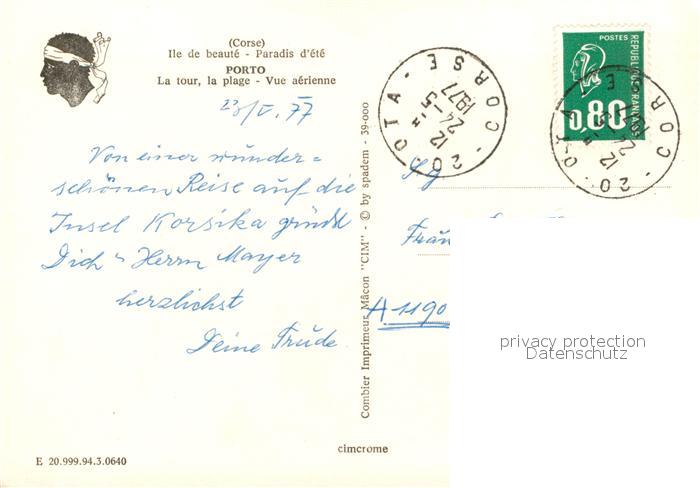 (Corse)
Ile de beauté - Paradis d'été
PORTO
La tour, la plage - Vue aérienne
23/V. 77
Von einer wunder=
schönen Reise auf die
Insel Korsika grüßt
Dich u Herrn Mayer
herzlichst
Deine Trude
E 20.999.94.3.0640
Combier Imprimeur Mâcon "CIM" - © by spadem - 39-000
cimcrome
20. OTA - CORSE
12 H
24-5
1977
POSTES
REPUBLIQUE FRANÇAISE
0,80
20. OTA - CORSE
12 H
Frau
A-1190
privacy protection
Datenschutz